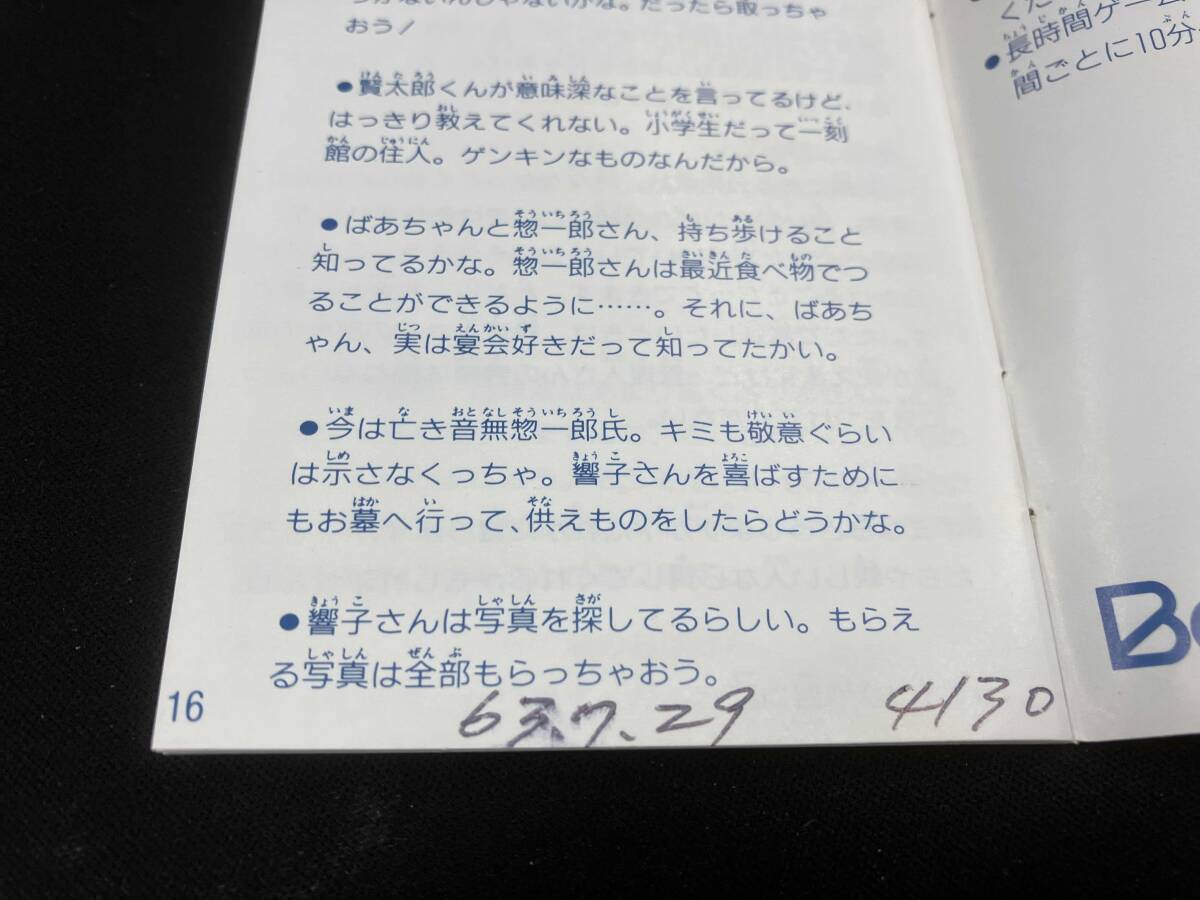 つかないんじゃないかな。だったら取っちゃ
おう!
●賢太郎くんが意味深なことを言ってるけど、
はっきり教えてくれない。小学生だって一刻
館の住人。ゲンキンなものなんだから。
●ばあちゃんと惣一郎さん、持ち歩けること
知ってるかな。惣一郎さんは最近食べ物でつ
ることができるように……。それに、ばあち
ゃん、実は宴会好きだって知ってたかい。
●今は亡き音無惣一郎氏。キミも敬意ぐらい
は示さなくっちゃ。響子さんを喜ばすために
もお墓へ行って、供えものをしたらどうかな。
●響子さんは写真を探してるらしい。もらえ
る写真は全部もらっちゃおう。
16
63.7.29 4130
くだ
●長時間ゲーム
間ごとに10分